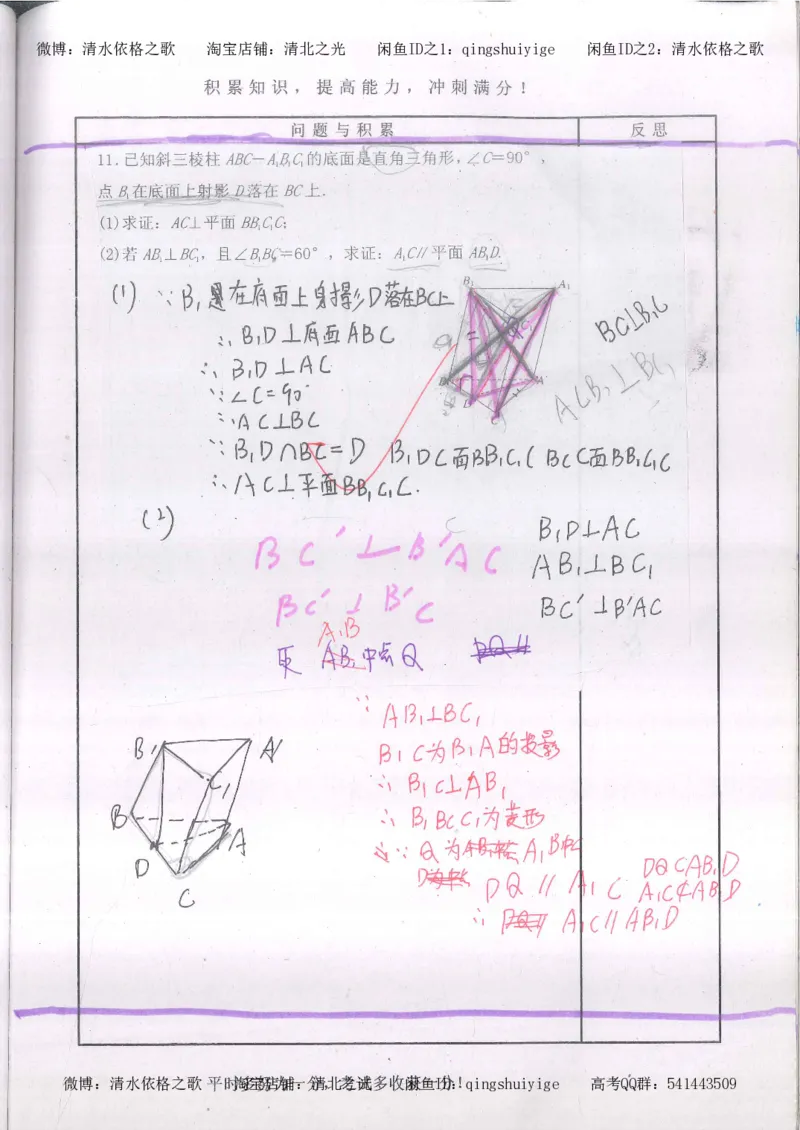 微博：清水依格之歌 淘宝店铺：清北之光 闲鱼ID之1：qingshuiyige 闲鱼ID之2：清水依格之歌
积累知识，提高能力，冲刺满分！
问题与积累 反思
11.已知斜三棱柱ABC－A₁B₁C₁的底面是直角三角形，∠C＝90°，
点B₁在底面上射影D落在BC上．
(1)求证：AC⊥平面BB₁C₁C；
(2)若AB₁⊥BC₁，且∠B₁BC＝60°，求证：A₁C∥平面AB₁D．
(1) ∵B₁是在底面上身摄影D落在BC上
∴B₁D⊥底面ABC
∴B₁D⊥AC
∵∠C=90°
∴AC⊥BC
∵B₁D∩BC=D B₁D⊂面BB₁C₁C BC⊂面BB₁C₁C
∴AC⊥平面BB₁C₁C.
B₁ A₁
BC₁⊥B₁C
ACB₁⊥BC₁
(2)
BC′⊥B′AC
BC′⊥B′C
B₁D⊥AC
AB₁⊥BC₁
BC′⊥B′AC
A₁B
取 AB₁中点Q
∵AB₁⊥BC₁
B₁C为B₁A的投影
∴B₁C⊥AB₁
∴B₁BCC₁为菱形
∵Q为A₁B中点
DQ∥A₁C
DQ⊂AB₁D
A₁C⊄AB₁D
∴A₁C∥AB₁D
B₁ A′
C₁
B
A
D
C
微博：清水依格之歌 淘宝店铺：清北之光 闲鱼ID：qingshuiyige 高考QQ群：541443509